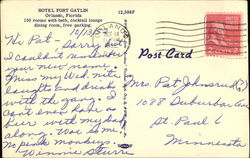 HOTEL FORT GATLIN
Orlando, Florida
150 rooms with bath, cocktail lounge
dining room, free parking.
12,306F
10/13/5
Hi Pat, Sorry but
I couldn't remember
your new name.
Miss my Wed. nite
laughs and drinks
with the gang. I
Cant even have a
beer with my bad
along. Woe is me
no peak monkeys.
Winnie
Post Card
Mrs. Pat Johnsrud
1088 Suburban
St. Paul 6
Minnesota